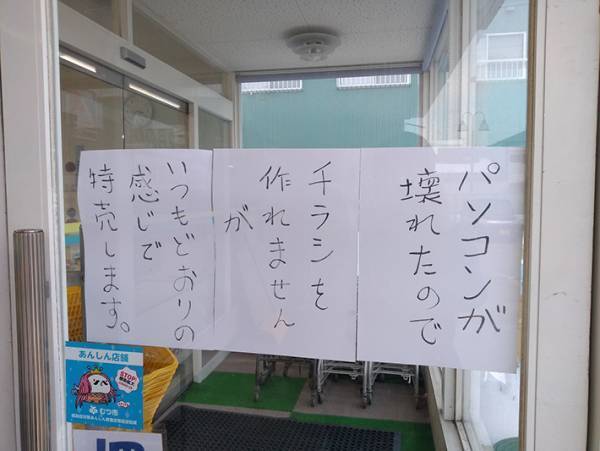 パソコンが
壊れたので
チラシを
作れません
が
いつもどおりの
感じで
特売します。
あんしん店舗
STOP
むつ市